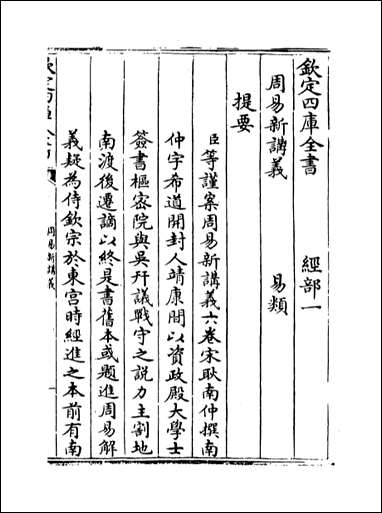 欽定四庫全書 經部一
周易新講義 易類
提要
臣等謹案周易新講義六卷宋耿南仲撰南
仲字希道開封人靖康間以資政殿大學士
簽書樞密院與吳幵議戰守之說力主割地
南渡後遷謫以終是書舊本或題進周易解
義疑為侍欽宗於東宮時經進之本前有南
周易新講義